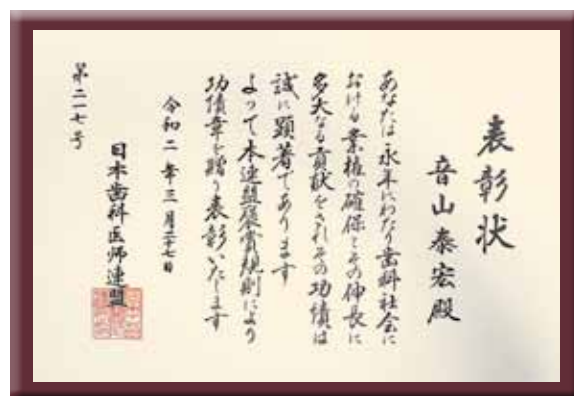 表彰状
音山泰宏殿
あなたは永年にわたり歯科社会に
おける業権の確保とその伸長に
多大なる貢献をされその功績は
誠に顕著であります
よって本連盟褒賞規則により
功績章を贈り表彰いたします
令和二年三月二十七日
日本歯科医師連盟
第二一七号